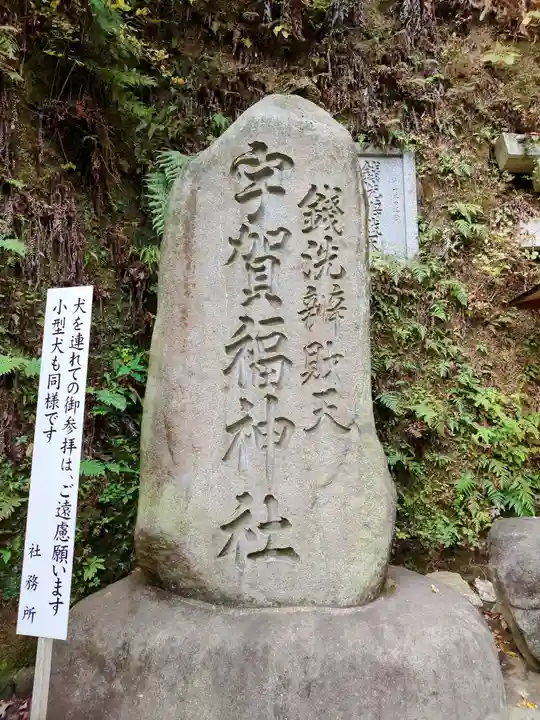 錢洗辨財天
宇賀福神社
犬を連れての御参拝は、ご遠慮願います
小型犬も同様です
社務所